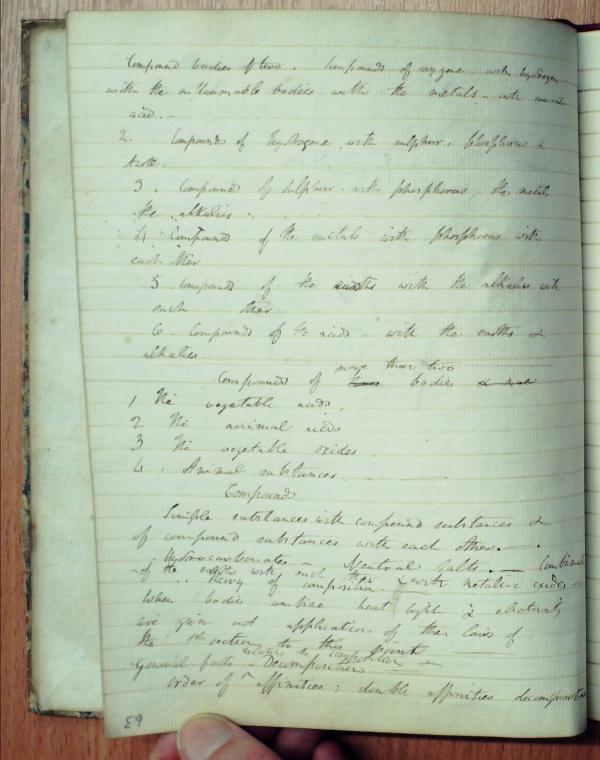 Compound bodies of two. Compounds of oxygene: with hydrogen
with the inflammable bodies with the metals - with
acid. -
2. Compounds of Hydrogene, with sulphur, phosphorus &
Azote.
3. Compounds of Sulphur with phosphorus, the metals
the alkalies.
4 Compounds of the metals with phosphorus with
each other
5 Compounds of the earths with the alkalies with
each other
6. Compounds of the acids - with the earths &
alkalies
more than two
Compounds of bodies
1 The vegetable acids,
2 The animal acids
3 The vegetable oxides
4. Animal substances
Compounds
Simple substances with compound substances &
of compound substances with each other.
Hydrocarbonates - Neutral salts. -
of the earths with each other & with metallic oxides
Theory of composition.
When bodies combine heat light & electricity
are given out application of the laws of
the 1st section to this point
relates to composition
General facts - Decomposition
order of affinities: double affinities
89